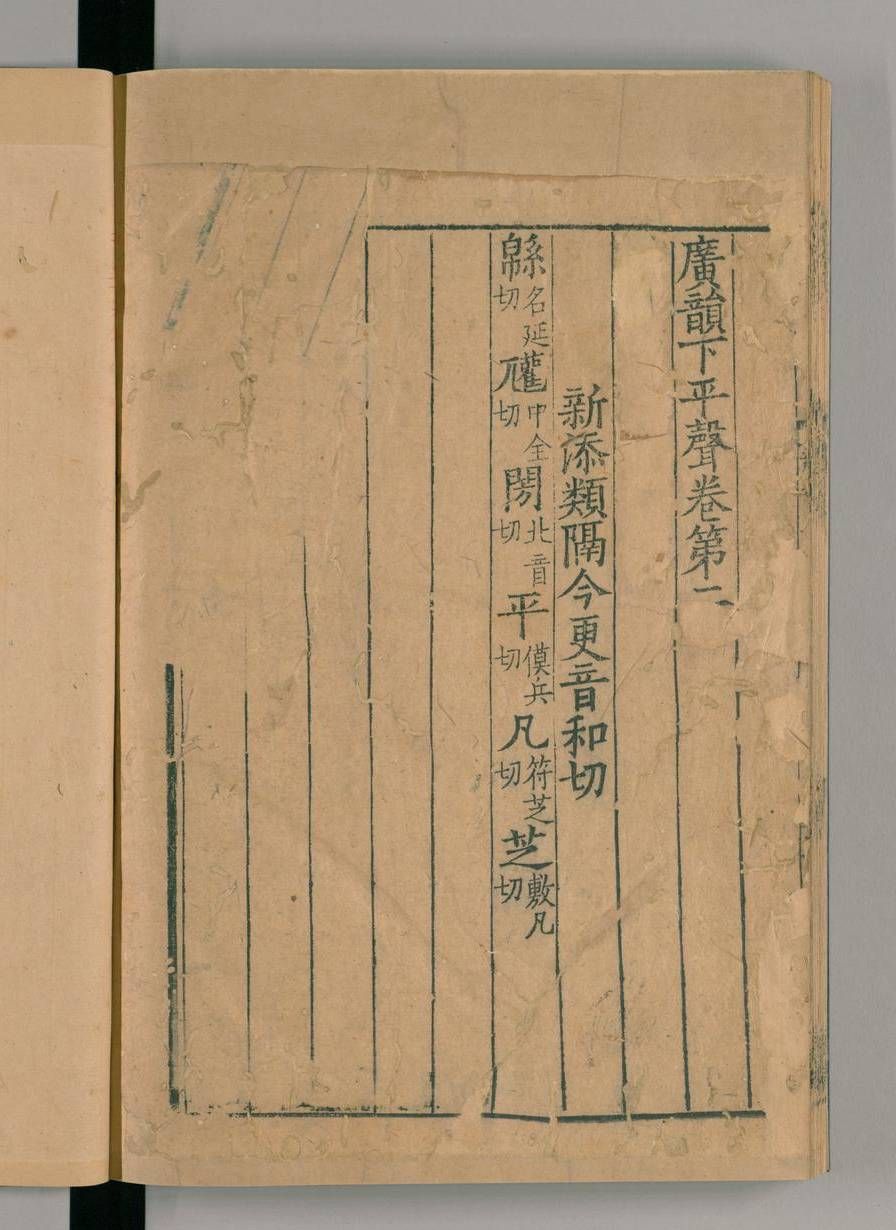 廣韻下平聲卷第二
新添類隔今更音和切
緜名延切中全切閍北音切平僕兵切凡符芝切芝敷凡切